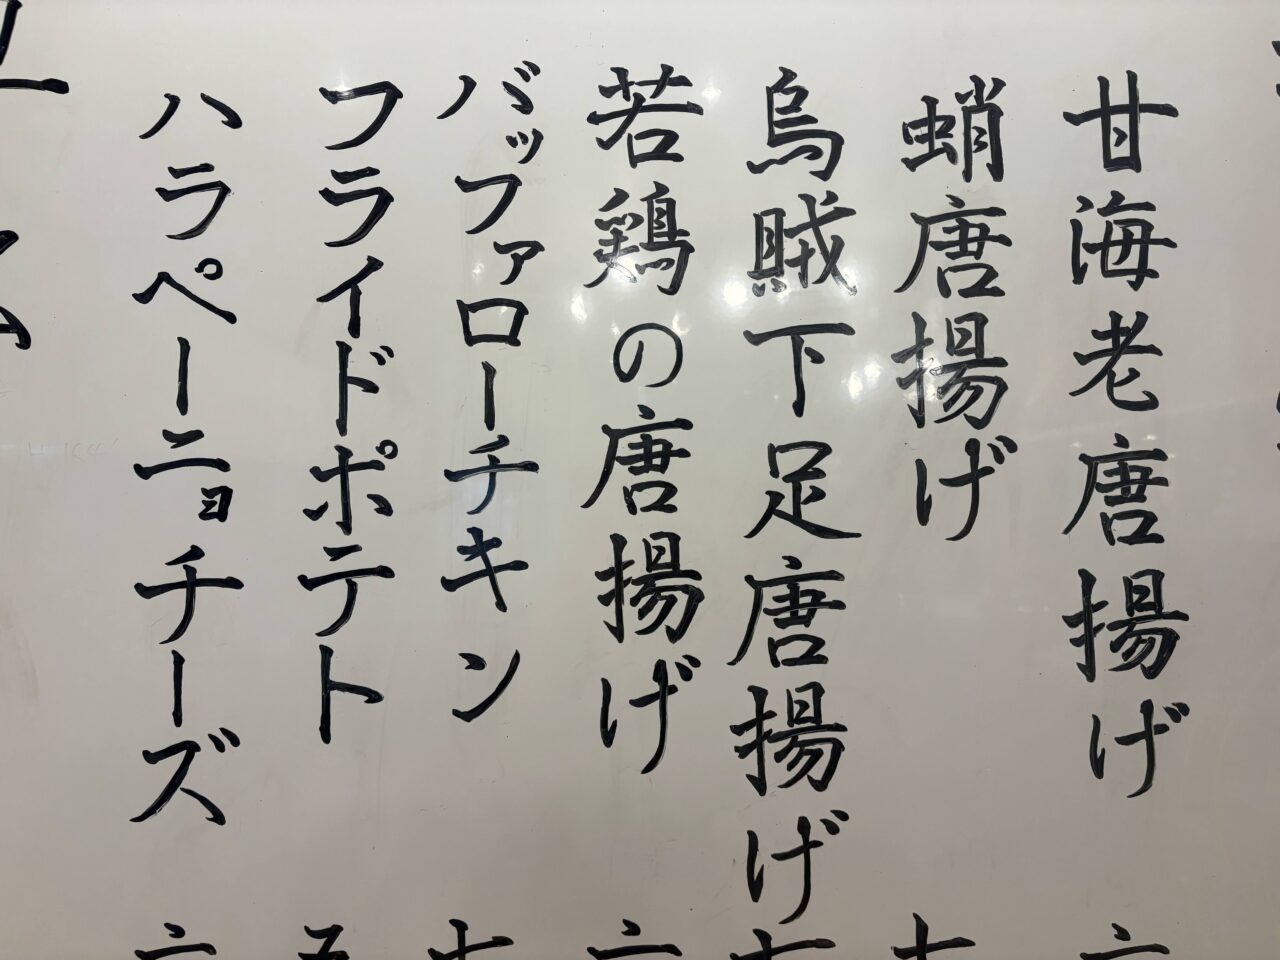 甘海老唐揚げ
蛸唐揚げ
烏賊下足唐揚げ
若鶏の唐揚げ
バッファローチキン
フライドポテト
ハラペーニョチーズ